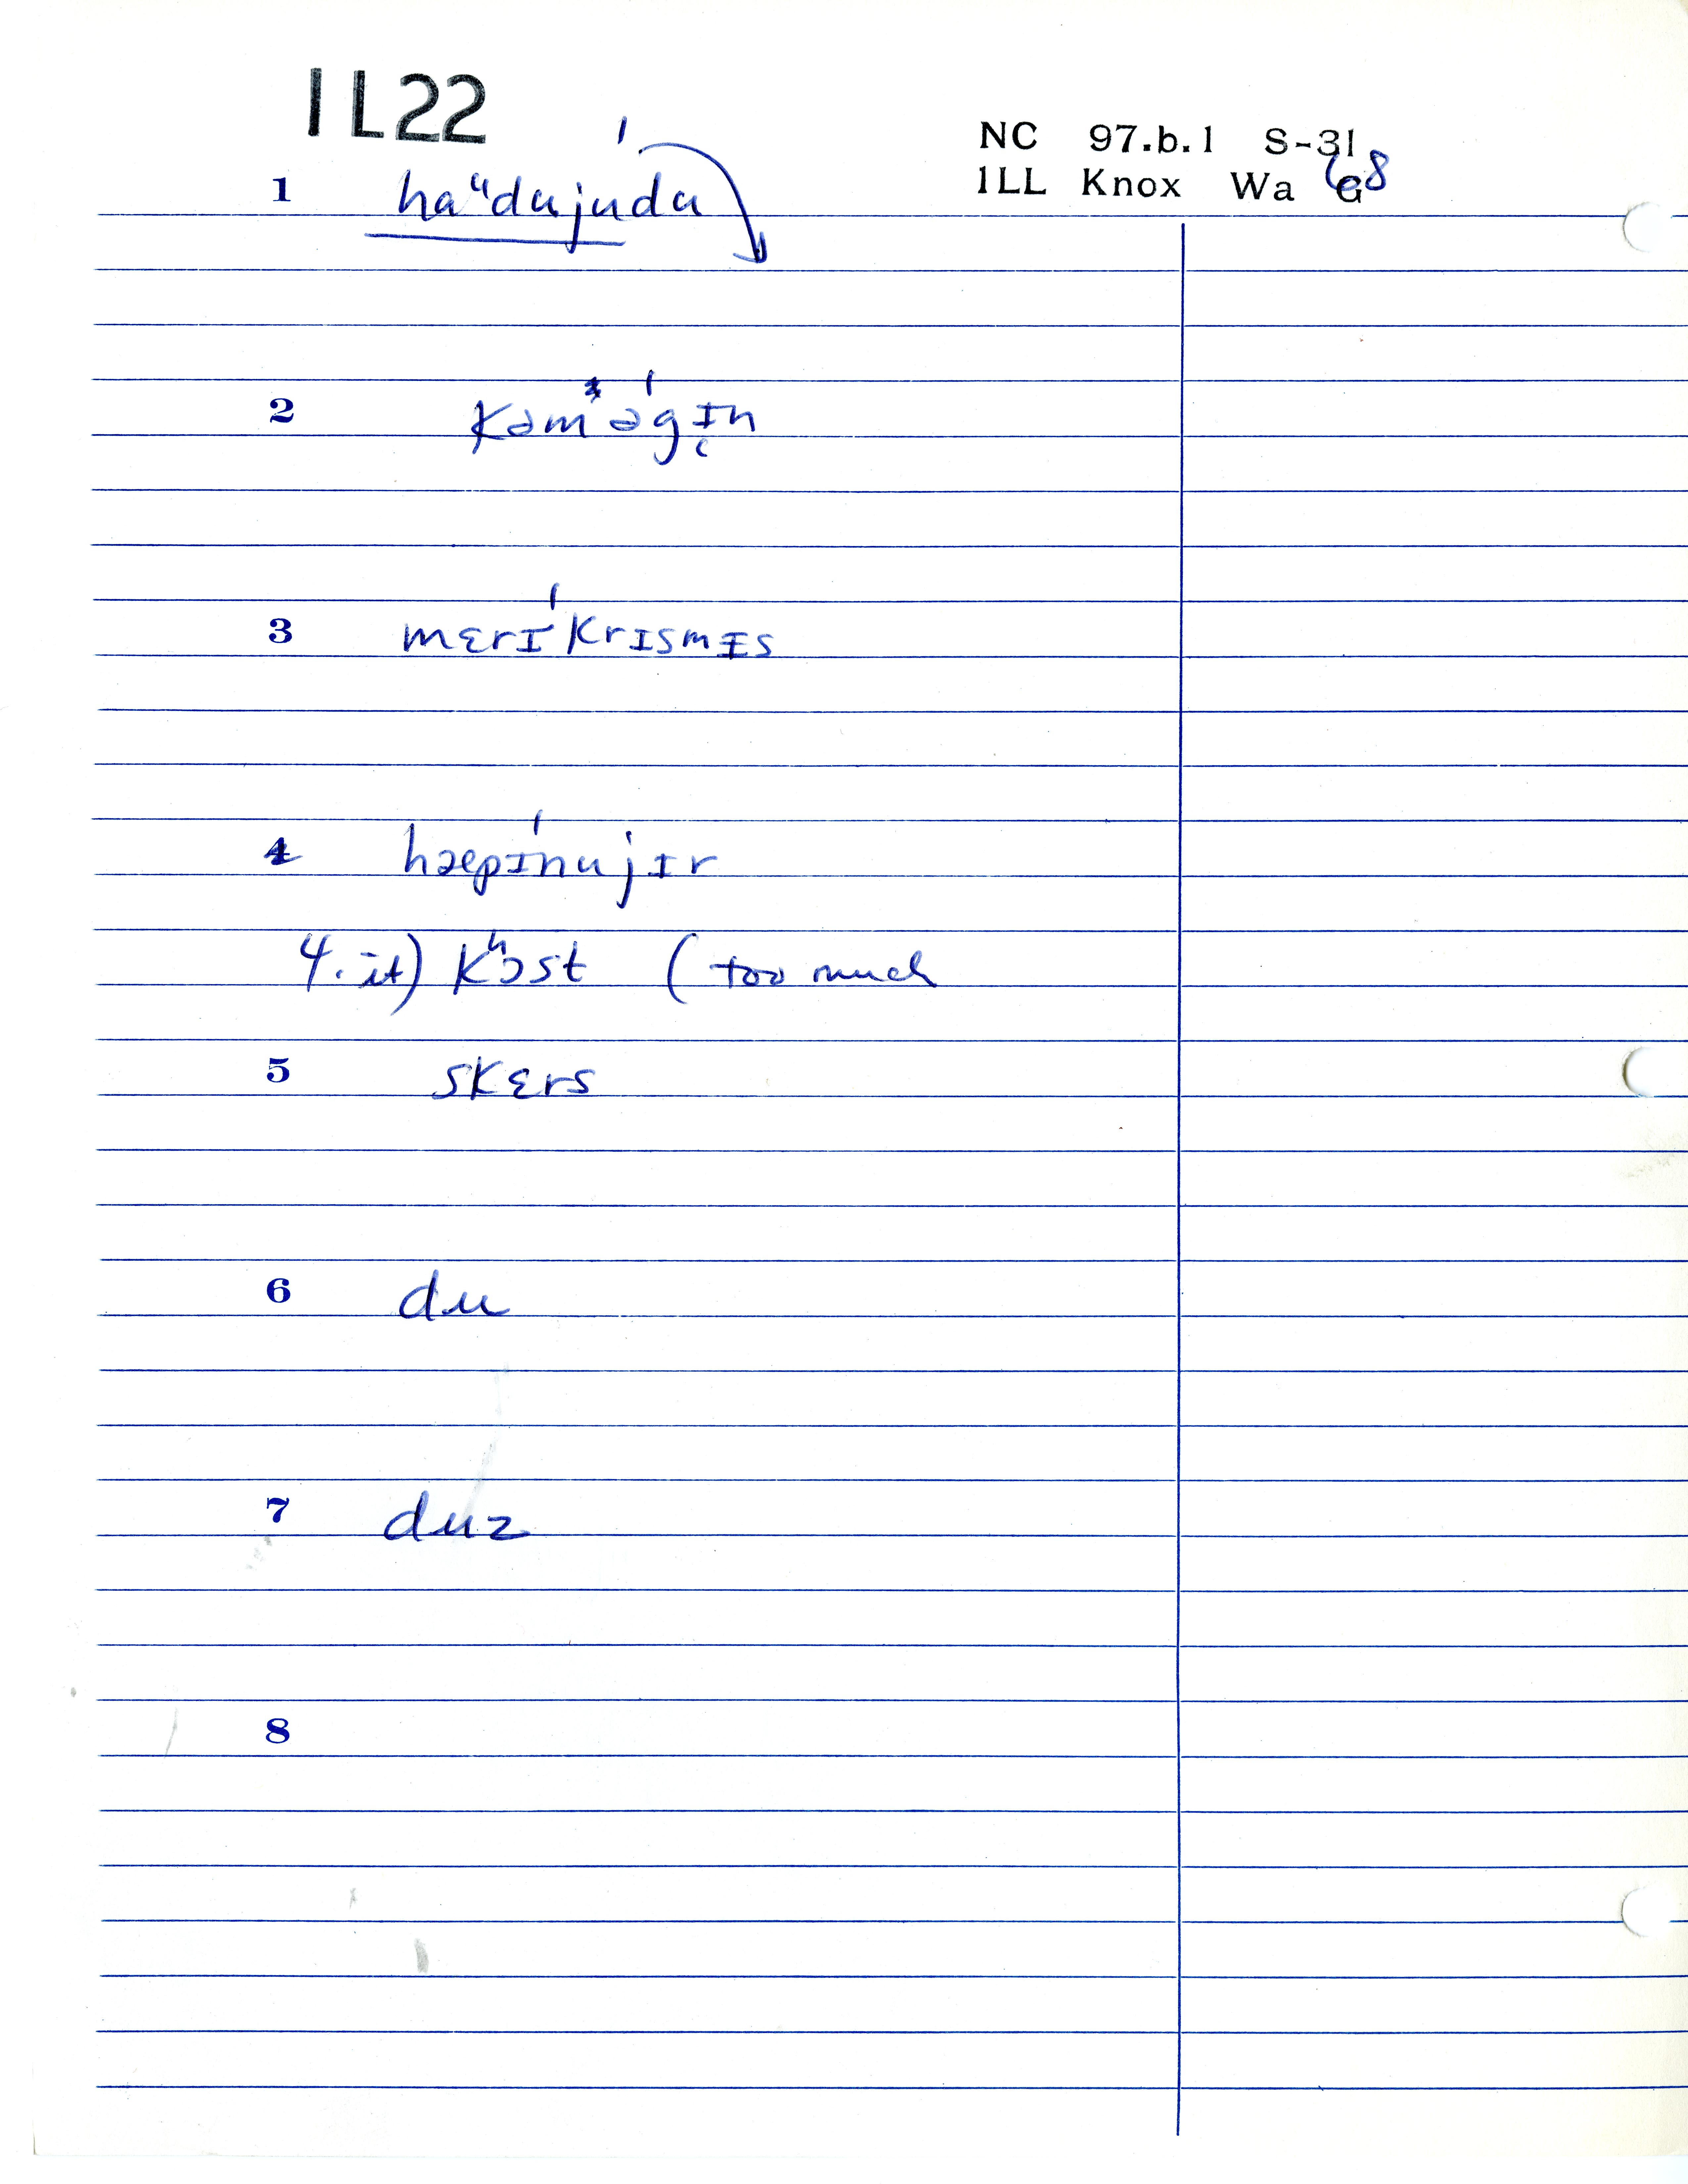 1L22
NC 97.b.1 S-31
1LL Knox Wa G 68
1 haᵘdujudu
2 kəmˈəgɪ̵n
3 mɛrɪˈkrɪsmɪ̵s
4 hæpɪˈnujɪr
4. it) kʰɔst (too much
5 skɛrs
6 du
7 duz
8